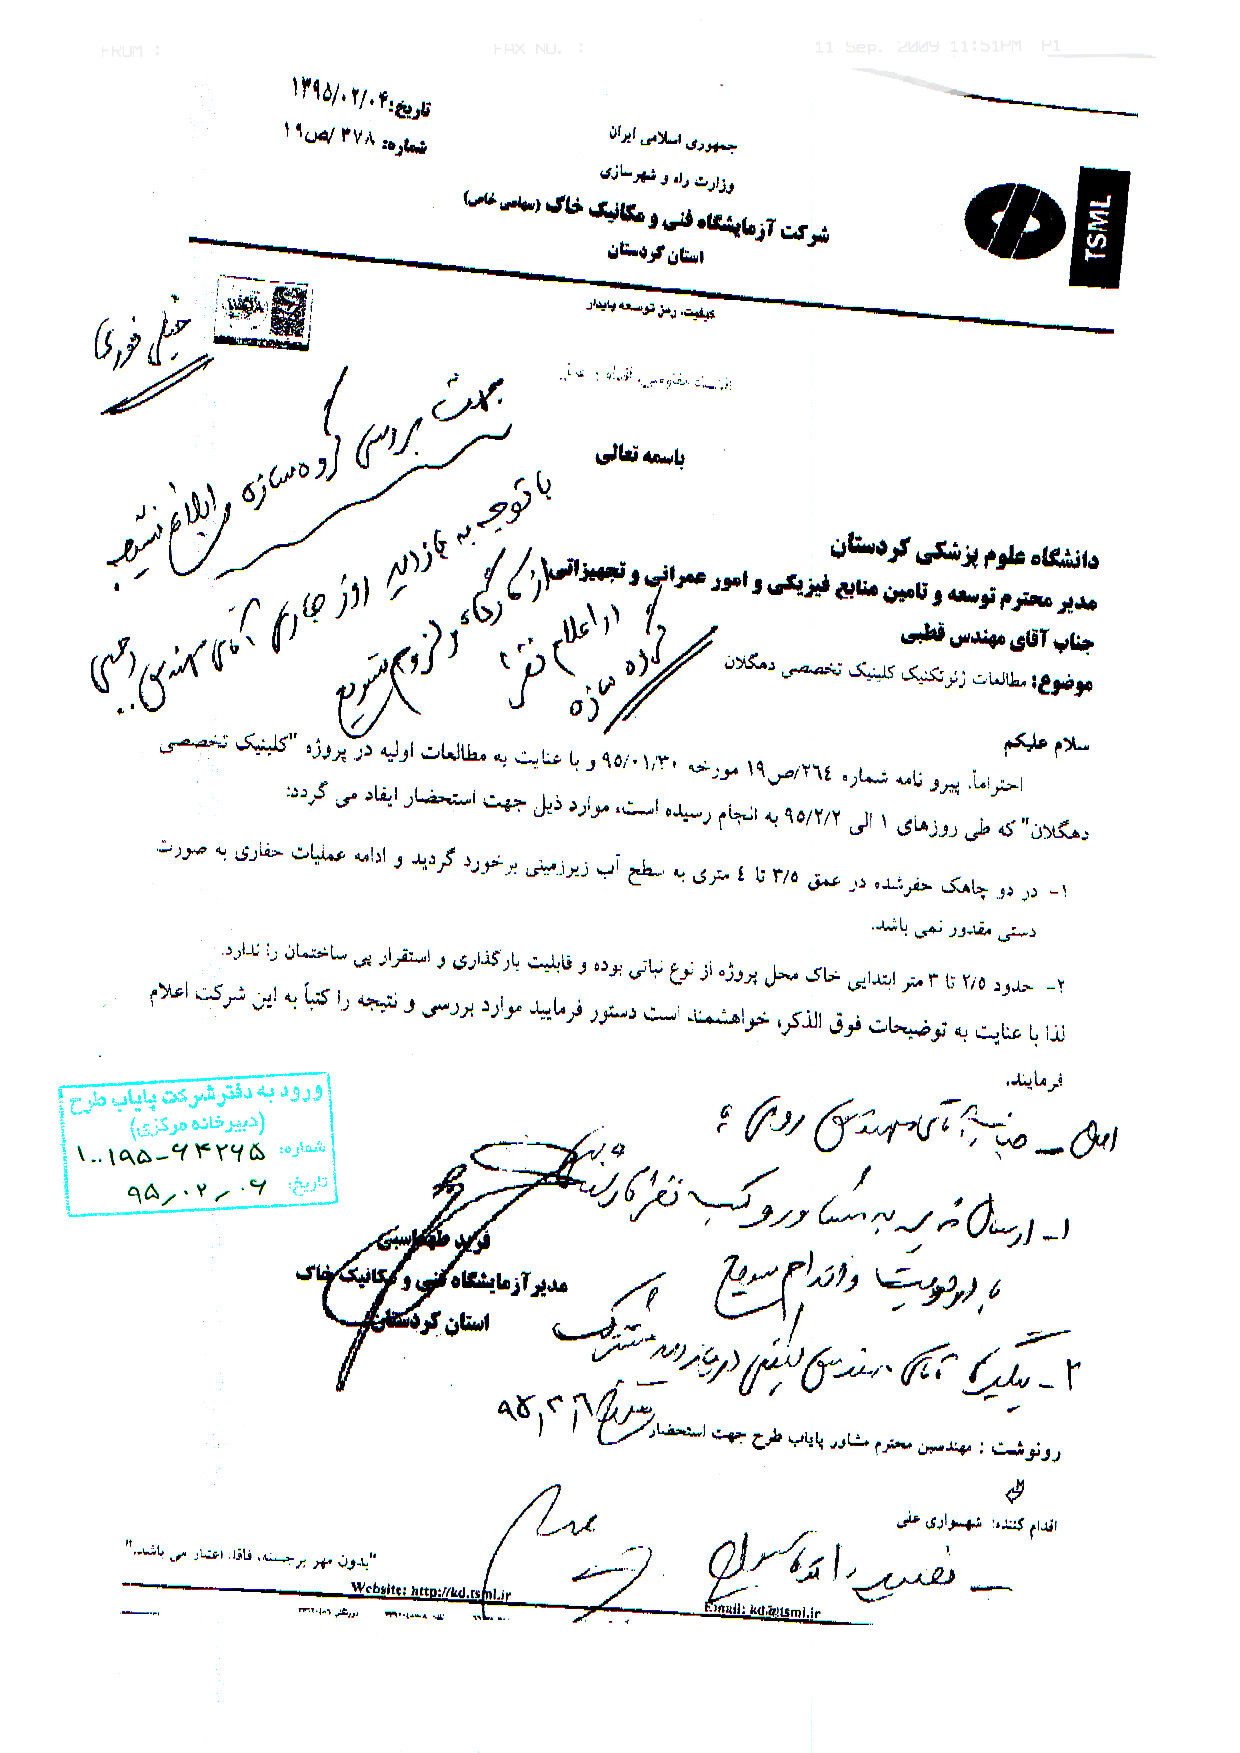 FROM :
FAX NO. :
11 Sep. 2009 11:51PM P1
تاریخ: ۱۳۹۵/۰۲/۰۴
شماره: ۳۷۸/ص۱۹
جمهوری اسلامی ایران
وزارت راه و شهرسازی
شرکت آزمایشگاه فنی و مکانیک خاک (سهامی خاص)
استان کردستان
TSML
کیفیت، رمز توسعه پایدار
خیلی فوری
جهت بررسی گروه سازه و ابلاغ
باسمه تعالی
با توجه به بازدید روز جاری آقای مهندس
دانشگاه علوم پزشکی کردستان
مدیر محترم توسعه و تامین منابع فیزیکی و امور عمرانی و تجهیزاتی
از کارگاه و لزوم تسریع
در اعلام نظر
گروه سازه
جناب آقای مهندس قطبی
موضوع: مطالعات ژئوتکنیک کلینیک تخصصی دهگلان
سلام علیکم
احتراماً، پیرو نامه شماره ۲۶۴/ص۱۹ مورخه ۹۵/۰۱/۳۰ و با عنایت به مطالعات اولیه در پروژه "کلینیک تخصصی
دهگلان" که طی روزهای ۱ الی ۹۵/۲/۲ به انجام رسیده است، موارد ذیل جهت استحضار ایفاد می گردد:
۱- در دو چاهک حفرشده در عمق ۳/۵ تا ۴ متری به سطح آب زیرزمینی برخورد گردید و ادامه عملیات حفاری به صورت
دستی مقدور نمی باشد.
۲- حدود ۲/۵ تا ۳ متر ابتدایی خاک محل پروژه از نوع نباتی بوده و قابلیت بارگذاری و استقرار پی ساختمان را ندارد.
لذا با عنایت به توضیحات فوق الذکر، خواهشمند است دستور فرمایید موارد بررسی و نتیجه را کتباً به این شرکت اعلام
فرمایند.
ورود به دفتر شرکت پایاب طرح
(دبیرخانه مرکزی)
شماره: ۱۰۰۱۹۵-۶۴۲۶۵
تاریخ: ۹۵/۰۲/۰۶
جناب آقای مهندس
۱- ارسال به مشاور و کسب نظر
با فوریت و اقدام سریع
فرید طهماسبی
مدیر آزمایشگاه فنی و مکانیک خاک
استان کردستان
۲- پیگیری آقای مهندس در بازدید مشترک
۹۵/۲/۶
رونوشت : مهندسین محترم مشاور پایاب طرح جهت استحضار
اقدام کننده: شهسواری علی
"بدون مهر برجسته، فاقد اعتبار می باشد."
Website: http://kd.tsml.ir
Email: kd@tsml.ir